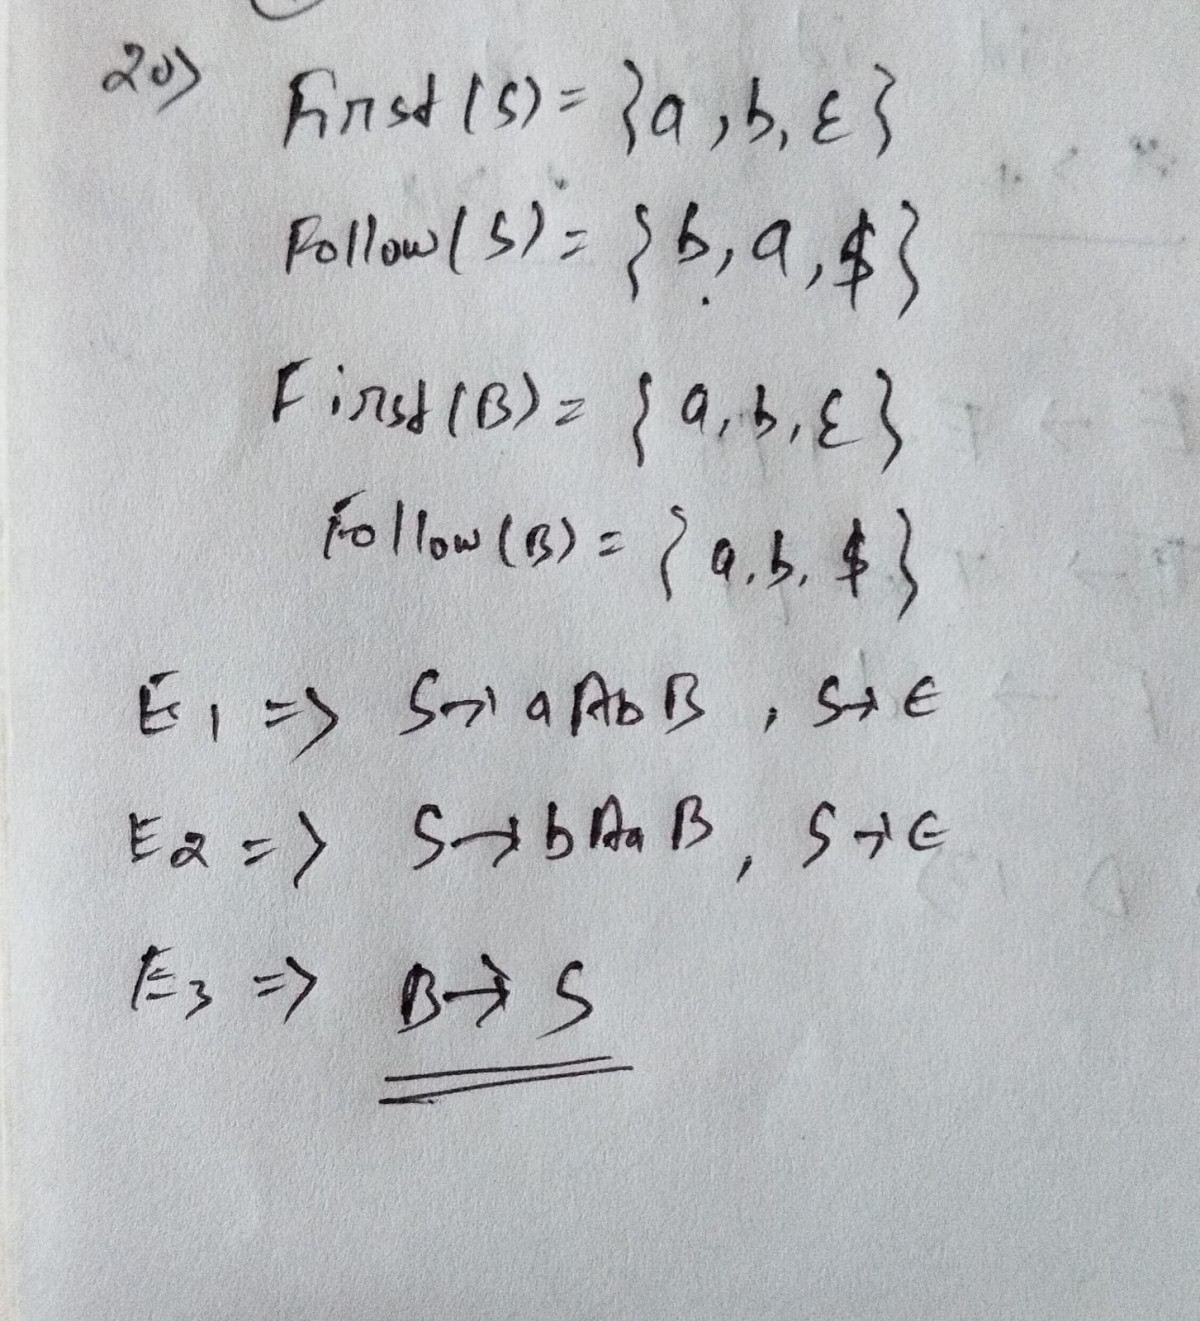 20)
First(S) = {a, b, ε}
Follow(S) = {b, a, $}
First(B) = {a, b, ε}
Follow(B) = {a, b, $}
E1 => S → aAbB, S → ∈
E2 => S → bAaB, S → ∈
E3 => B → S